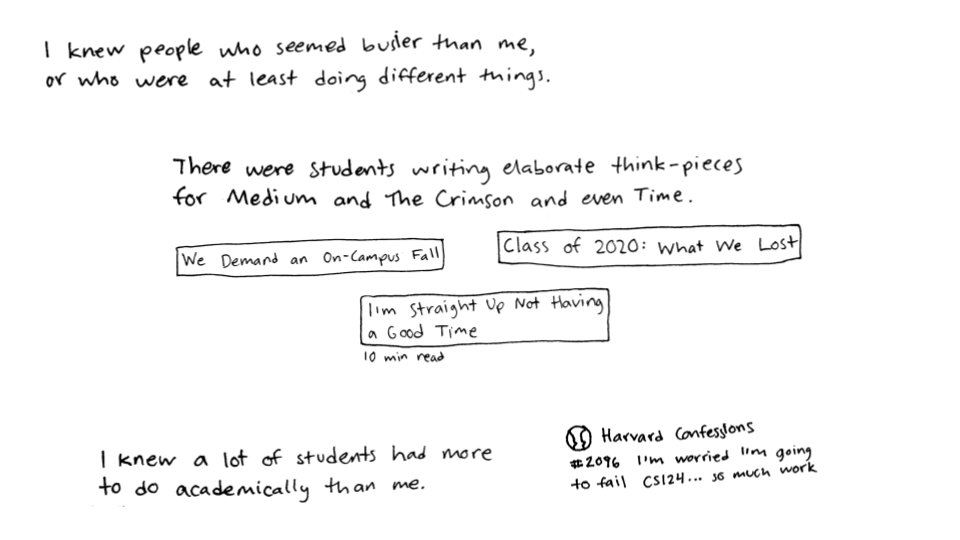 I knew people who seemed busier than me,
or who were at least doing different things.
There were students writing elaborate think-pieces
for Medium and The Crimson and even Time.
We Demand an On-Campus Fall
Class of 2020: What We Lost
I'm Straight Up Not Having
a Good Time
10 min read
I knew a lot of students had more
to do academically than me.
Harvard Confessions
#2096 I'm worried I'm going
to fail CS124... so much work